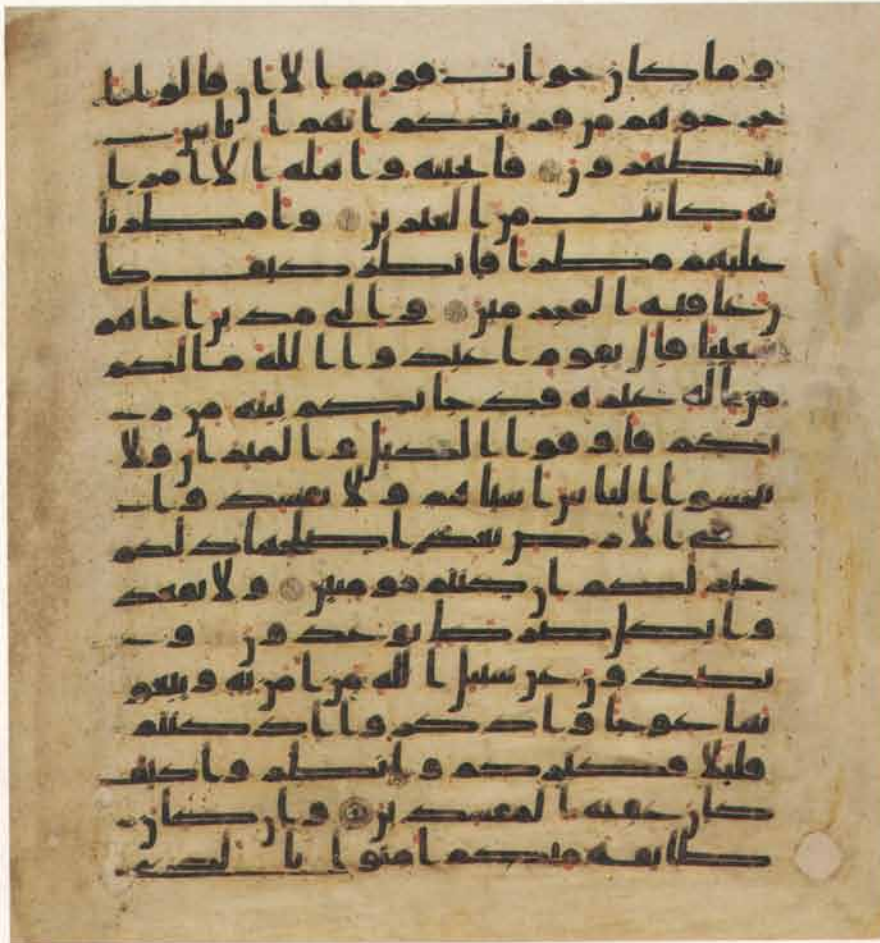 وما كان جواب قومه الا ان قالوا ا
خرجوهم من قريتكم انهم اناس
يتطهرون فانجينه واهله الا امرا
ته كانت من الغبرين وامطرنا
عليهم مطرا فانظر كيف كا
ن عاقبة المجرمين والى مدين اخاهم
شعيبا قال يقوم اعبدوا الله مالكم
من اله غيره قد جاتكم بينة من ر
بكم فاوفوا الكيل والميزان ولا
تبخسوا الناس اشياهم ولا تفسدوا
في الارض بعد اصلحها ذلكم
خير لكم ان كنتم مومنين ولا تقعد
وا بكل صرط توعدون و
تصدون عن سبيل الله من امن به وتبغو
نها عوجا واذكروا اذ كنتم
قليلا فكثركم وانظروا كيف
كان عقبة المفسدين وان كان
طايفة منكم امنوا بالذي